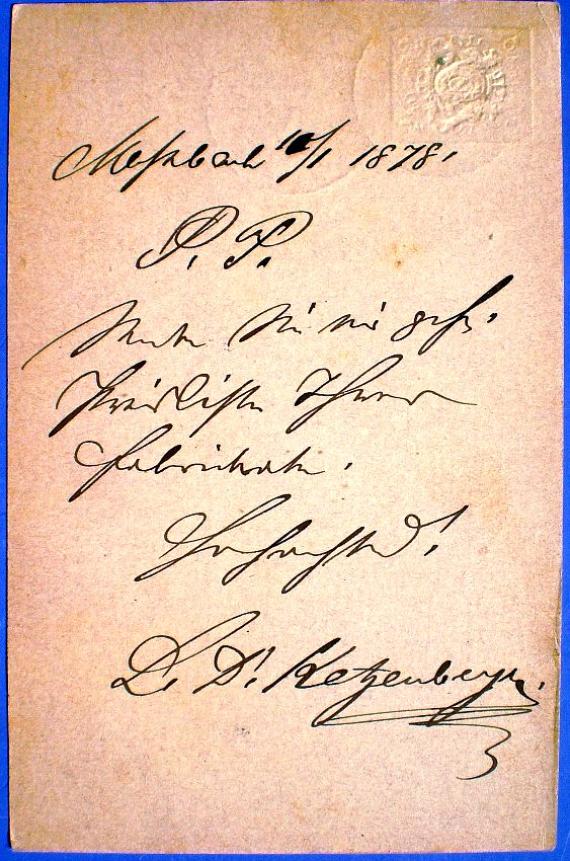 Mosbach 10/1 1878.
P. P.
Senden Sie mir gefl.
Preisliste Ihrer
Fabrikate.
Hochachtend!
D. Ketzenberger